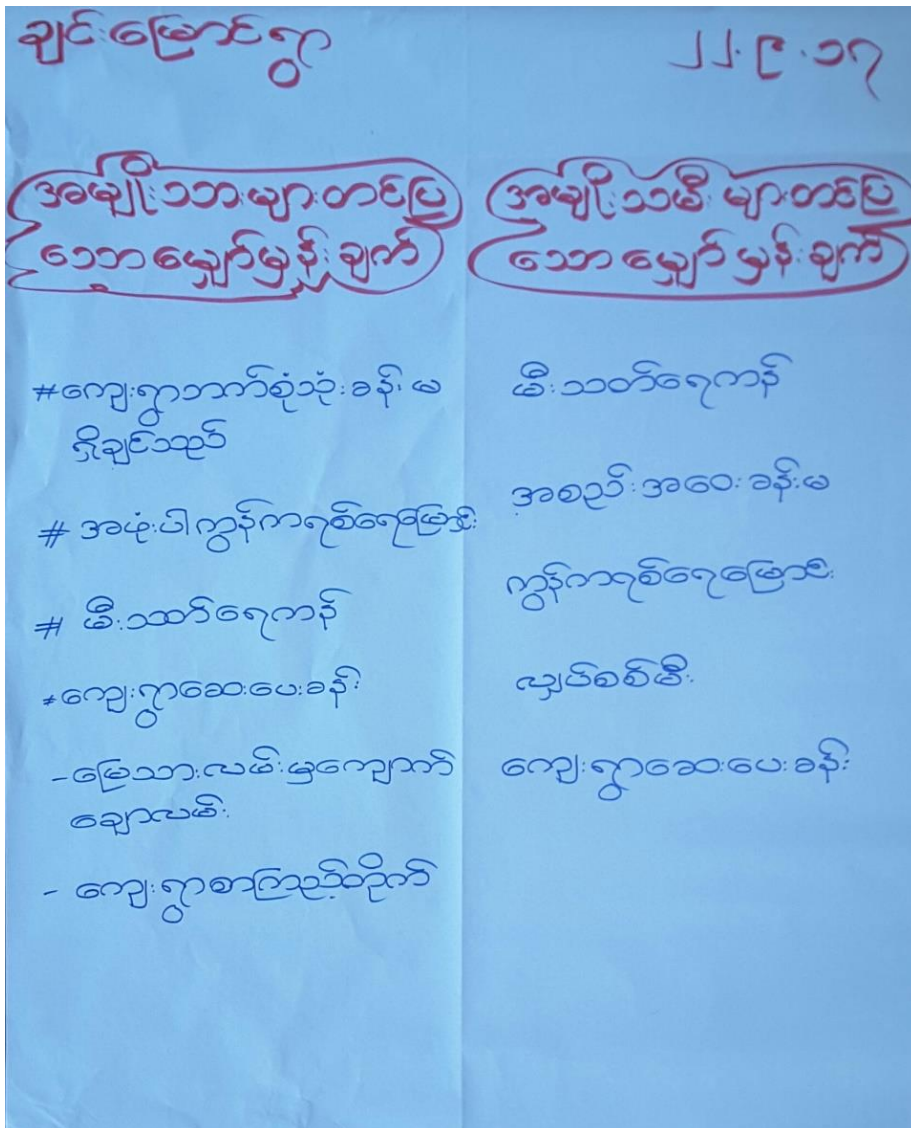 ချင်းမြောင်ရွာ
၂၂.၉.၁၇
အမျိုးသားများတင်ပြ
သော့မျှော်မှန်းချက်
#ကျေးရွာဘက်စုံသုံးခန်းမ
ရှိချင်သည်
# အဖုံးပါကွန်ကရစ်ရေမြောင်း
# မီးသတ်ရေကန်
*ကျေးရွာဆေးပေးခန်း
-မြေသားလမ်းမှကျောက်
ချောလမ်း
- ကျေးရွာစာကြည့်တိုက်
အမျိုးသမီးများတင်ပြ
သောမျှော်မှန်းချက်
မီးသတ်ရေကန်
အစည်းအဝေးခန်းမ
ကွန်ကရစ်ရေမြောင်း
လျှပ်စစ်မီး
ကျေးရွာဆေးပေးခန်း